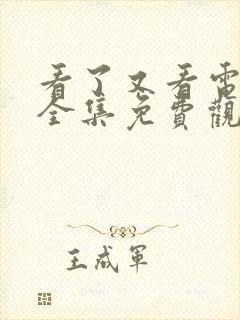 看了又看電
全集免費觀
王成軍